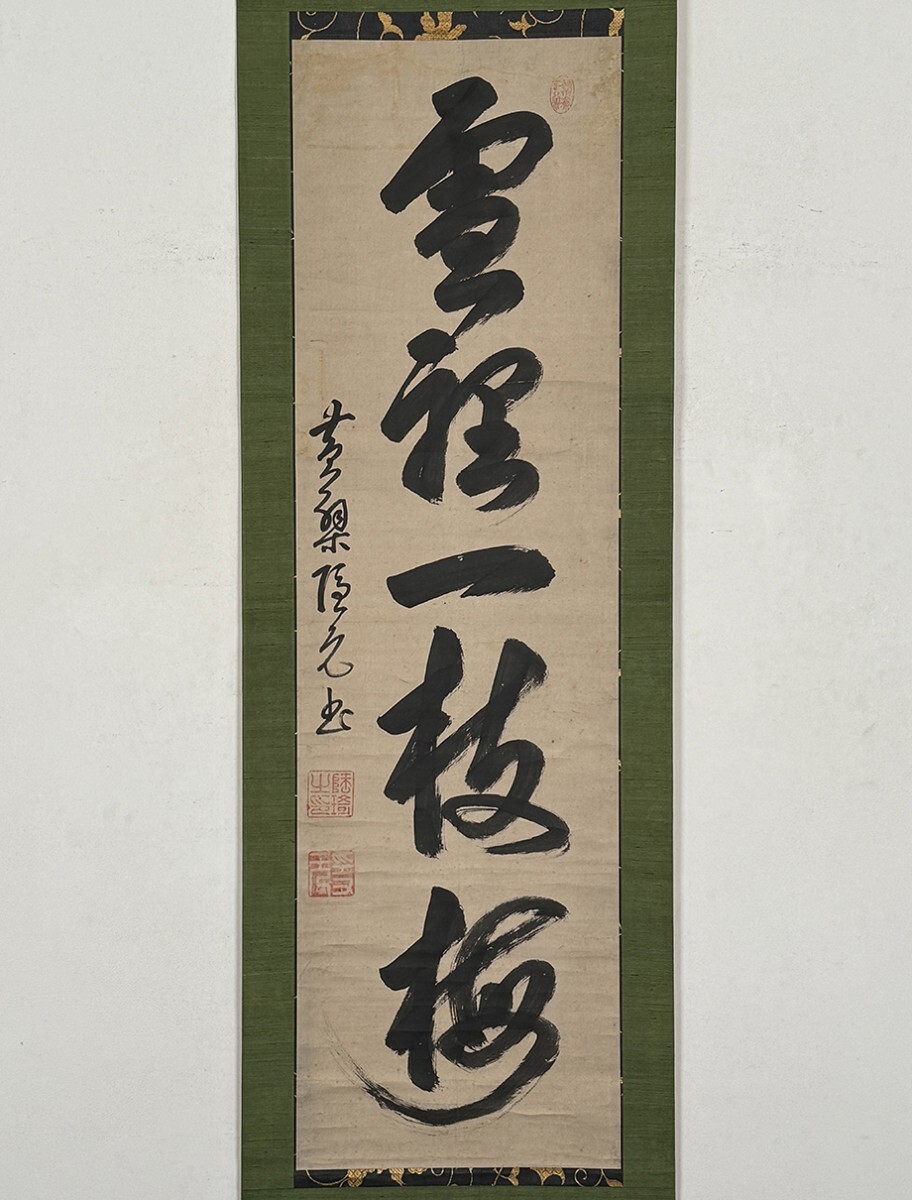 雪裡一枝梅
黄檗隱元書